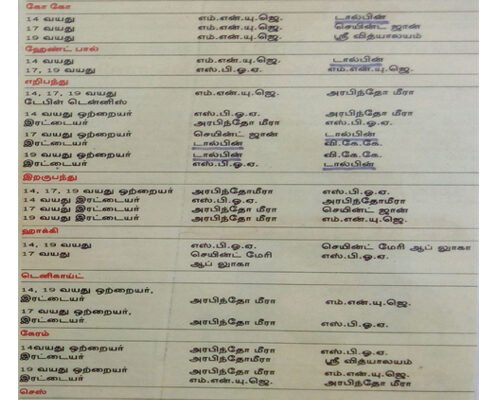 கோ கோ
14 வயது எம்.என்.யு.ஜெ. டால்பின்
17 வயது எம்.என்.யு.ஜெ. செயின்ட் ஜான்
19 வயது எம்.என்.யு.ஜெ. ஸ்ரீ வித்யாலயம்
ஹேண்ட் பால்
14 வயது எம்.என்.யு.ஜெ. டால்பின்
17, 19 வயது எஸ்.பி.ஓ.ஏ. எம்.என்.யு.ஜெ.
எறிபந்து
14, 17, 19 வயது எம்.என்.யு.ஜெ. அரபிந்தோ மீரா
டேபிள் டென்னிஸ்
14 வயது ஒற்றையர் எஸ்.பி.ஓ.ஏ. அரபிந்தோ மீரா
இரட்டையர் அரபிந்தோ மீரா எஸ்.பி.ஓ.ஏ.
17 வயது ஒற்றையர் செயின்ட் ஜான் டால்பின்
இரட்டையர் டால்பின் வி.கே.கே.
19 வயது ஒற்றையர் டால்பின் வி.கே.கே.
இரட்டையர் எஸ்.பி.ஓ.ஏ. டால்பின்
இறகுபந்து
14, 17, 19 வயது ஒற்றையர் அரபிந்தோமீரா எஸ்.பி.ஓ.ஏ.
14 வயது இரட்டையர் எஸ்.பி.ஓ.ஏ. அரபிந்தோமீரா
17 வயது இரட்டையர் அரபிந்தோமீரா செயின்ட் ஜான்
19 வயது இரட்டையர் அரபிந்தோமீரா எம்.என்.யு.ஜெ.
ஹாக்கி
14, 19 வயது எஸ்.பி.ஓ.ஏ. செயின்ட் மேரி ஆப் லூகா
17 வயது செயின்ட் மேரி எஸ்.பி.ஓ.ஏ.
ஆப் லூகா
டெனிகாய்ட்
14, 19 வயது ஒற்றையர்,
இரட்டையர் அரபிந்தோ மீரா எம்.என்.யு.ஜெ.
17 வயது ஒற்றையர்,
இரட்டையர் அரபிந்தோ மீரா எஸ்.பி.ஓ.ஏ.
கேரம்
14வயது ஒற்றையர் அரபிந்தோமீரா எஸ்.பி.ஓ.ஏ.
இரட்டையர் அரபிந்தோமீரா ஸ்ரீ வித்யாலயம்
19 வயது ஒற்றையர் அரபிந்தோமீரா எம்.என்.யு.ஜெ.
இரட்டையர் எம்.என்.யு.ஜெ. அரபிந்தோ மீரா
செஸ்